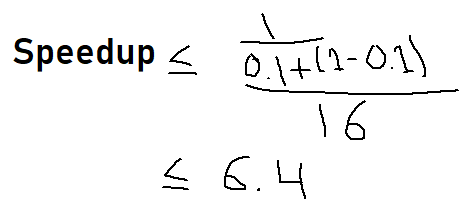 Speedup ≤ 1
0.1+(1-0.1)
16
≤ 6.4